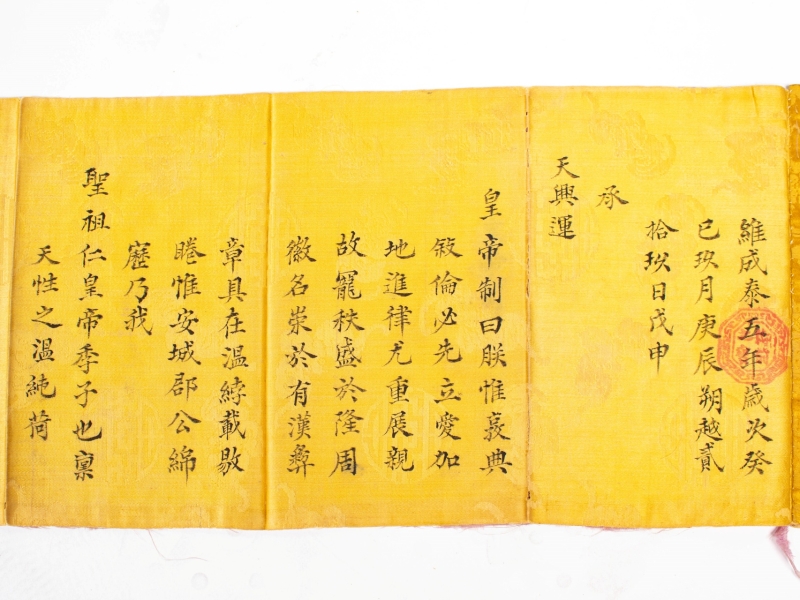 維成泰五年歲次癸
巳玖月庚辰朔越貳
拾玖日戊申
承
天興運
皇帝制曰朕惟義典
敘倫必先立愛加
地進律尤重展親
故寵秩盛於隆周
徽名崇於有漢彝
章具在溫綍載敭
睠惟安城郡公綿
㝫乃我
聖祖仁皇帝季子也稟
天性之溫純荷